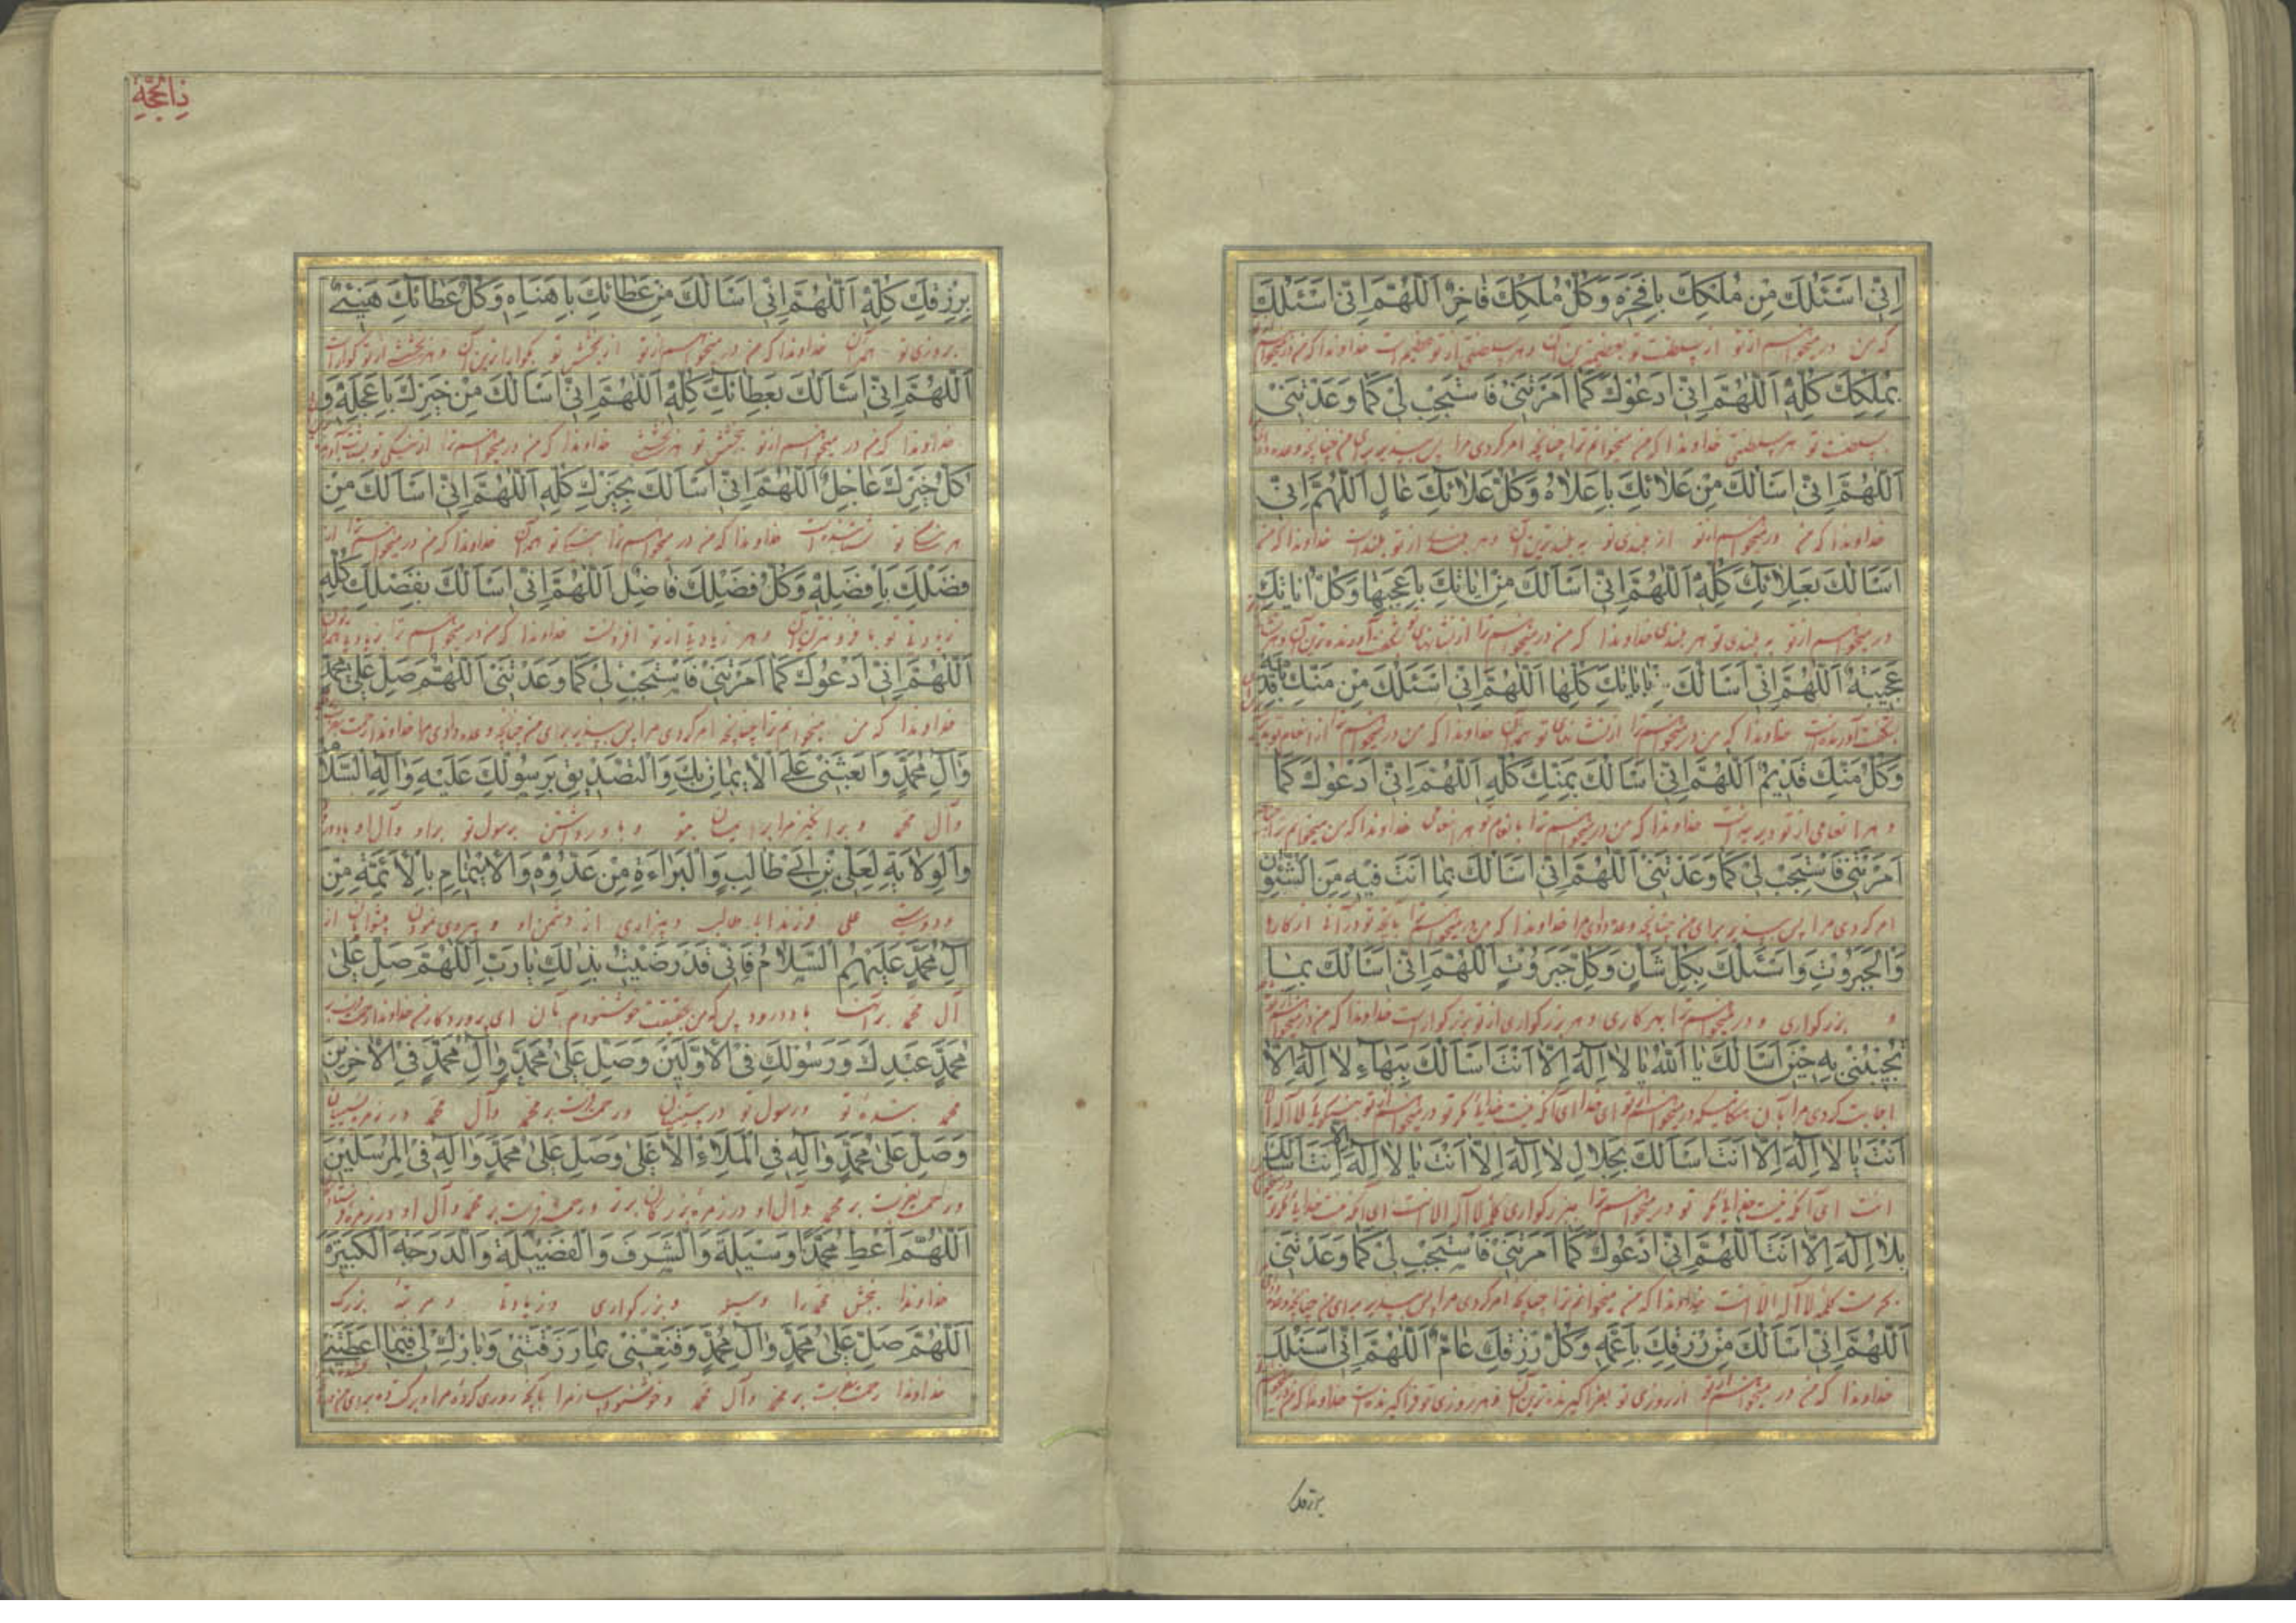 اِنّی اَسْئَلُكَ مِنْ مُلْكِكَ بِاَفْخَرِهِ وَكُلُّ مُلْكِكَ فٰاخِرٌ اَللّٰهُمَّ اِنّی اَسْئَلُكَ
که من در میخواهم از تو از سلطنت تو بعظیم‌ترین آن و هر سلطنتی از تو عظیم است خداوندا که من در میخواهم
بِمُلْكِكَ كُلِّهِ اَللّٰهُمَّ اِنّی اَدْعُوكَ كَمٰا اَمَرْتَنی فَاسْتَجِبْ لی كَمٰا وَعَدْتَنی
بسلطنت تو هر سلطنتی خداوندا که من میخوانم ترا چنانچه امر کردی مرا پس بپذیر برای من چنانچه وعده
اَللّٰهُمَّ اِنّی اَسَالُكَ مِنْ عَلٰائِكَ بِاَعْلٰاهُ وَكُلُّ عَلٰائِكَ عٰالٍ اَللّٰهُمَّ اِنّی
خداوندا که من در میخواهم از تو از بلندی تو به بلندترین آن و هر بلندی از تو بلند است خداوندا که من
اَسَالُكَ بِعَلٰائِكَ كُلِّهِ اَللّٰهُمَّ اِنّی اَسَالُكَ مِنْ اٰیٰاتِكَ بِاَعْجَبِهٰا وَكُلُّ اٰیٰاتِكَ
در میخواهم از تو به بلندی تو هر بلندی خداوندا که من در میخواهم ترا از نشانهای تو بشگفت آورنده‌ترین آن و هر
عَجیبَةٌ اَللّٰهُمَّ اِنّی اَسَالُكَ بِاٰیٰاتِكَ كُلِّهٰا اَللّٰهُمَّ اِنّی اَسْئَلُكَ مِنْ مَنِّكَ بِاَقْدَمِهِ
بشگفت آورنده است خداوندا که من در میخواهم ترا از نشانهای تو همه آن خداوندا که من در میخواهم ترا از انعام تو
وَكُلُّ مَنِّكَ قَدیمٌ اَللّٰهُمَّ اِنّی اَسَالُكَ بِمَنِّكَ كُلِّهِ اَللّٰهُمَّ اِنّی اَدْعُوكَ كَمٰا
و هر انعامی از تو دیرینه است خداوندا که من در میخواهم ترا بانعام تو هر انعامی خداوندا که من میخوانم ترا
اَمَرْتَنی فَاسْتَجِبْ لی كَمٰا وَعَدْتَنی اَللّٰهُمَّ اِنّی اَسَالُكَ بِمٰا اَنْتَ فیهِ مِنَ الشُّئُونِ
امر کردی مرا پس بپذیر برای من چنانچه وعده دادی مرا خداوندا که من در میخواهم ترا بآنچه تو در آنی از کارها
وَالْجَبَرُوتِ وَاَسْئَلُكَ بِكُلِّ شَاْنٍ وَكُلِّ جَبَرُوتٍ اَللّٰهُمَّ اِنّی اَسَالُكَ بِمٰا
و بزرگواری و در میخواهم ترا بهر کاری و هر بزرگواری از تو بزرگوار است خداوندا که من در میخواهم
تُجیبُنی بِهِ حینَ اَسَالُكَ یٰا اَللّٰهُ یٰا لٰا اِلٰهَ اِلّٰا اَنْتَ اَسَالُكَ بِبَهٰاءِ لٰا اِلٰهَ اِلّٰا
اجابت کردی مرا بآن هنگامیکه در میخواهم از تو ای خدا ای آنکه نیست خدایا مگر تو در میخواهم از تو بنیکویی لا اله الا
اَنْتَ یٰا لٰا اِلٰهَ اِلّٰا اَنْتَ اَسَالُكَ بِجَلٰالِ لٰا اِلٰهَ اِلّٰا اَنْتَ یٰا لٰا اِلٰهَ اِلّٰا اَنْتَ اَسَالُكَ
انت ای آنکه نیست خدایا مگر تو در میخواهم ترا ببزرگواری کلمهٔ لا اله الا انت ای آنکه نیست خدایا مگر تو
بِلٰا اِلٰهَ اِلّٰا اَنْتَ اَللّٰهُمَّ اِنّی اَدْعُوكَ كَمٰا اَمَرْتَنی فَاسْتَجِبْ لی كَمٰا وَعَدْتَنی
بحرمت کلمهٔ لا اله الا انت خداوندا که من میخوانم ترا چنانچه امر کردی مرا پس بپذیر برای من چنانچه وعده
اَللّٰهُمَّ اِنّی اَسَالُكَ مِنْ رِزْقِكَ بِاَعَمِّهِ وَكُلُّ رِزْقِكَ عٰامٌّ اَللّٰهُمَّ اِنّی اَسْئَلُكَ
خداوندا که من در میخواهم از تو از روزی تو بفراگیرنده‌ترین آن و هر روزی تو فراگیرنده است خداوندا که من در میخواهم
برزقك
ذِالْحَجَّةِ
بِرِزْقِكَ كُلِّهِ اَللّٰهُمَّ اِنّی اَسَالُكَ مِنْ عَطٰائِكَ بِاَهْنَاِهِ وَكُلُّ عَطٰائِكَ هَنیءٌ
بروزی تو همه آن خداوندا که من در میخواهم از تو از بخشش تو بگواراترین آن و هر بخشش از تو گوارا است
اَللّٰهُمَّ اِنّی اَسَالُكَ بِعَطٰائِكَ كُلِّهِ اَللّٰهُمَّ اِنّی اَسَالُكَ مِنْ خَیْرِكَ بِاَعْجَلِهِ وَ
خداوندا که من در میخواهم از تو ببخشش تو هر بخشش خداوندا که من در میخواهم ترا از نیکی تو
كُلُّ خَیْرِكَ عٰاجِلٌ اَللّٰهُمَّ اِنّی اَسَالُكَ بِخَیْرِكَ كُلِّهِ اَللّٰهُمَّ اِنّی اَسَالُكَ مِنْ
هر نیکی تو شتابنده است خداوندا که من در میخواهم ترا بنیکی تو همه آن خداوندا که من در میخواهم ترا از
فَضْلِكَ بِاَفْضَلِهِ وَكُلُّ فَضْلِكَ فٰاضِلٌ اَللّٰهُمَّ اِنّی اَسَالُكَ بِفَضْلِكَ كُلِّهِ
زیادتی تو بافزونترین آن و هر زیادتی از تو افزونست خداوندا که من در میخواهم ترا بزیادتی
اَللّٰهُمَّ اِنّی اَدْعُوكَ كَمٰا اَمَرْتَنی فَاسْتَجِبْ لی كَمٰا وَعَدْتَنی اَللّٰهُمَّ صَلِّ عَلٰی مُحَمَّدٍ
خداوندا که من میخوانم ترا چنانچه امر کردی مرا پس بپذیر برای من چنانچه وعده دادی مرا خداوندا رحمت
وَاٰلِ مُحَمَّدٍ وَابْعَثْنی عَلَی الْاِیمٰانِ بِكَ وَالتَّصْدیقِ بِرَسُولِكَ عَلَیْهِ وَاٰلِهِ السَّلٰامُ
وآل محمد و برانگیز مرا بر ایمان بتو و باور داشتن برسول تو براو وآل او باد درود
وَالْوِلٰایَةِ لِعَلِیِّ بْنِ اَبی طٰالِبٍ وَالْبَرٰاءَةِ مِنْ عَدُوِّهِ وَالْاِیتِمٰامِ بِالْاَئِمَّةِ مِنْ
ودوستی علی فرزند ابی طالب و بیزاری از دشمن او و پیروی نمودن پیشوایان از
اٰلِ مُحَمَّدٍ عَلَیْهِمُ السَّلٰامُ فَاِنّی قَدْ رَضیتُ بِذٰلِكَ یٰا رَبِّ اَللّٰهُمَّ صَلِّ عَلٰی
آل محمد بر آنها باد درود پس که من بحقیقت خوشنودم بآن ای پروردگار من خداوندا رحمت
مُحَمَّدٍ عَبْدِكَ وَرَسُولِكَ فِی الْاَوَّلینَ وَصَلِّ عَلٰی مُحَمَّدٍ وَاٰلِ مُحَمَّدٍ فِی الْاٰخِرینَ
محمد بندهٔ تو ورسول تو در پیشینیان ورحمت بفرست بر محمد وآل محمد در زمره پسینیان
وَصَلِّ عَلٰی مُحَمَّدٍ وَاٰلِهِ فِی الْمَلَاءِ الْاَعْلٰی وَصَلِّ عَلٰی مُحَمَّدٍ وَاٰلِهِ فِی الْمُرْسَلینَ
ورحمت بفرست بر محمد وآل او در زمرهٔ بزرگان برتر ورحمت بفرست بر محمد وآل او در زمرهٔ
اَللّٰهُمَّ اَعْطِ مُحَمَّدًا وَسیلَةَ وَالشَّرَفَ وَالْفَضیلَةَ وَالدَّرَجَةَ الْكَبیرَةَ
خداوندا ببخش محمد را وسیله وبزرگواری وزیادتی و مرتبهٔ بزرگ
اَللّٰهُمَّ صَلِّ عَلٰی مُحَمَّدٍ وَاٰلِ مُحَمَّدٍ وَقَنِّعْنی بِمٰا رَزَقْتَنی وَبٰارِكْ لی فیمٰا اَعْطَیْتَنی
خداوندا رحمت بفرست بر محمد وآل محمد وخوشنود ساز مرا بآنچه روزی کردهٔ مرا وبرکت ده برای من